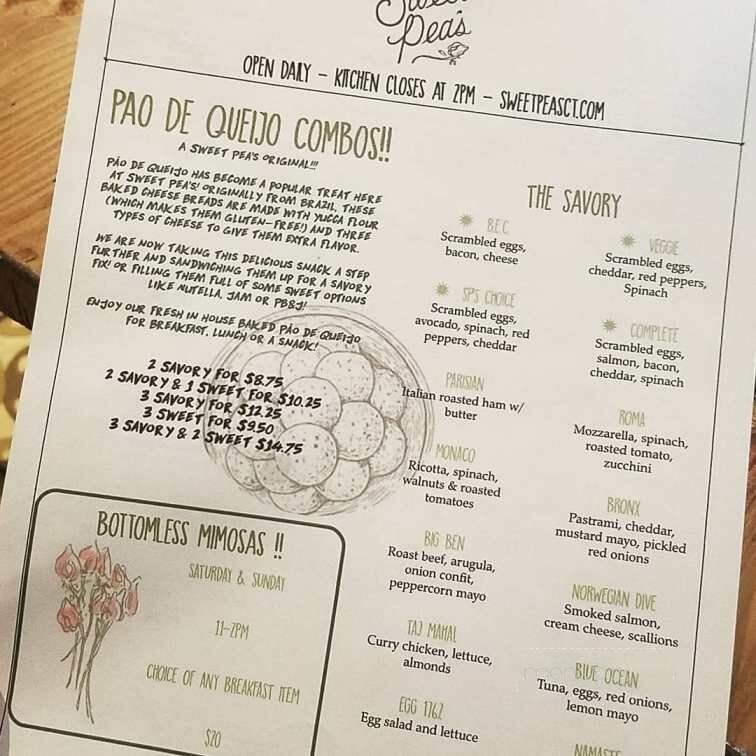 Sweet
Pea's
OPEN DAILY – KITCHEN CLOSES AT 2PM – SWEETPEASCT.COM
PAO DE QUEIJO COMBOS!!
A SWEET PEA'S ORIGINAL!!!
PÃO DE QUEIJO HAS BECOME A POPULAR TREAT HERE
AT SWEET PEA'S! ORIGINALLY FROM BRAZIL, THESE
BAKED CHEESE BREADS ARE MADE WITH YUCCA FLOUR
(WHICH MAKES THEM GLUTEN-FREE!) AND THREE
TYPES OF CHEESE TO GIVE THEM EXTRA FLAVOR.
WE ARE NOW TAKING THIS DELICIOUS SNACK A STEP
FURTHER AND SANDWICHING THEM UP FOR A SAVORY
FIX! OR FILLING THEM FULL OF SOME SWEET OPTIONS
LIKE NUTELLA, JAM OR PB&J!
ENJOY OUR FRESH IN HOUSE BAKED PÃO DE QUEIJO
FOR BREAKFAST, LUNCH OR A SNACK!
2 SAVORY FOR $8.75
2 SAVORY & 1 SWEET FOR $10.25
3 SAVORY FOR $12.25
3 SWEET FOR $9.50
3 SAVORY & 2 SWEET $14.75
BOTTOMLESS MIMOSAS !!
SATURDAY & SUNDAY
11-2PM
CHOICE OF ANY BREAKFAST ITEM
$20
THE SAVORY
B.E.C
Scrambled eggs,
bacon, cheese
SP'S CHOICE
Scrambled eggs,
avocado, spinach, red
peppers, cheddar
PARISIAN
Italian roasted ham w/
butter
MONACO
Ricotta, spinach,
walnuts & roasted
tomatoes
BIG BEN
Roast beef, arugula,
onion confit,
peppercorn mayo
TAJ MAHAL
Curry chicken, lettuce,
almonds
EGG 1762
Egg salad and lettuce
VEGGIE
Scrambled eggs,
cheddar, red peppers,
Spinach
COMPLETE
Scrambled eggs,
salmon, bacon,
cheddar, spinach
ROMA
Mozzarella, spinach,
roasted tomato,
zucchini
BRONX
Pastrami, cheddar,
mustard mayo, pickled
red onions
NORWEGIAN DIVE
Smoked salmon,
cream cheese, scallions
BLUE OCEAN
Tuna, eggs, red onions,
lemon mayo
NAMASTE